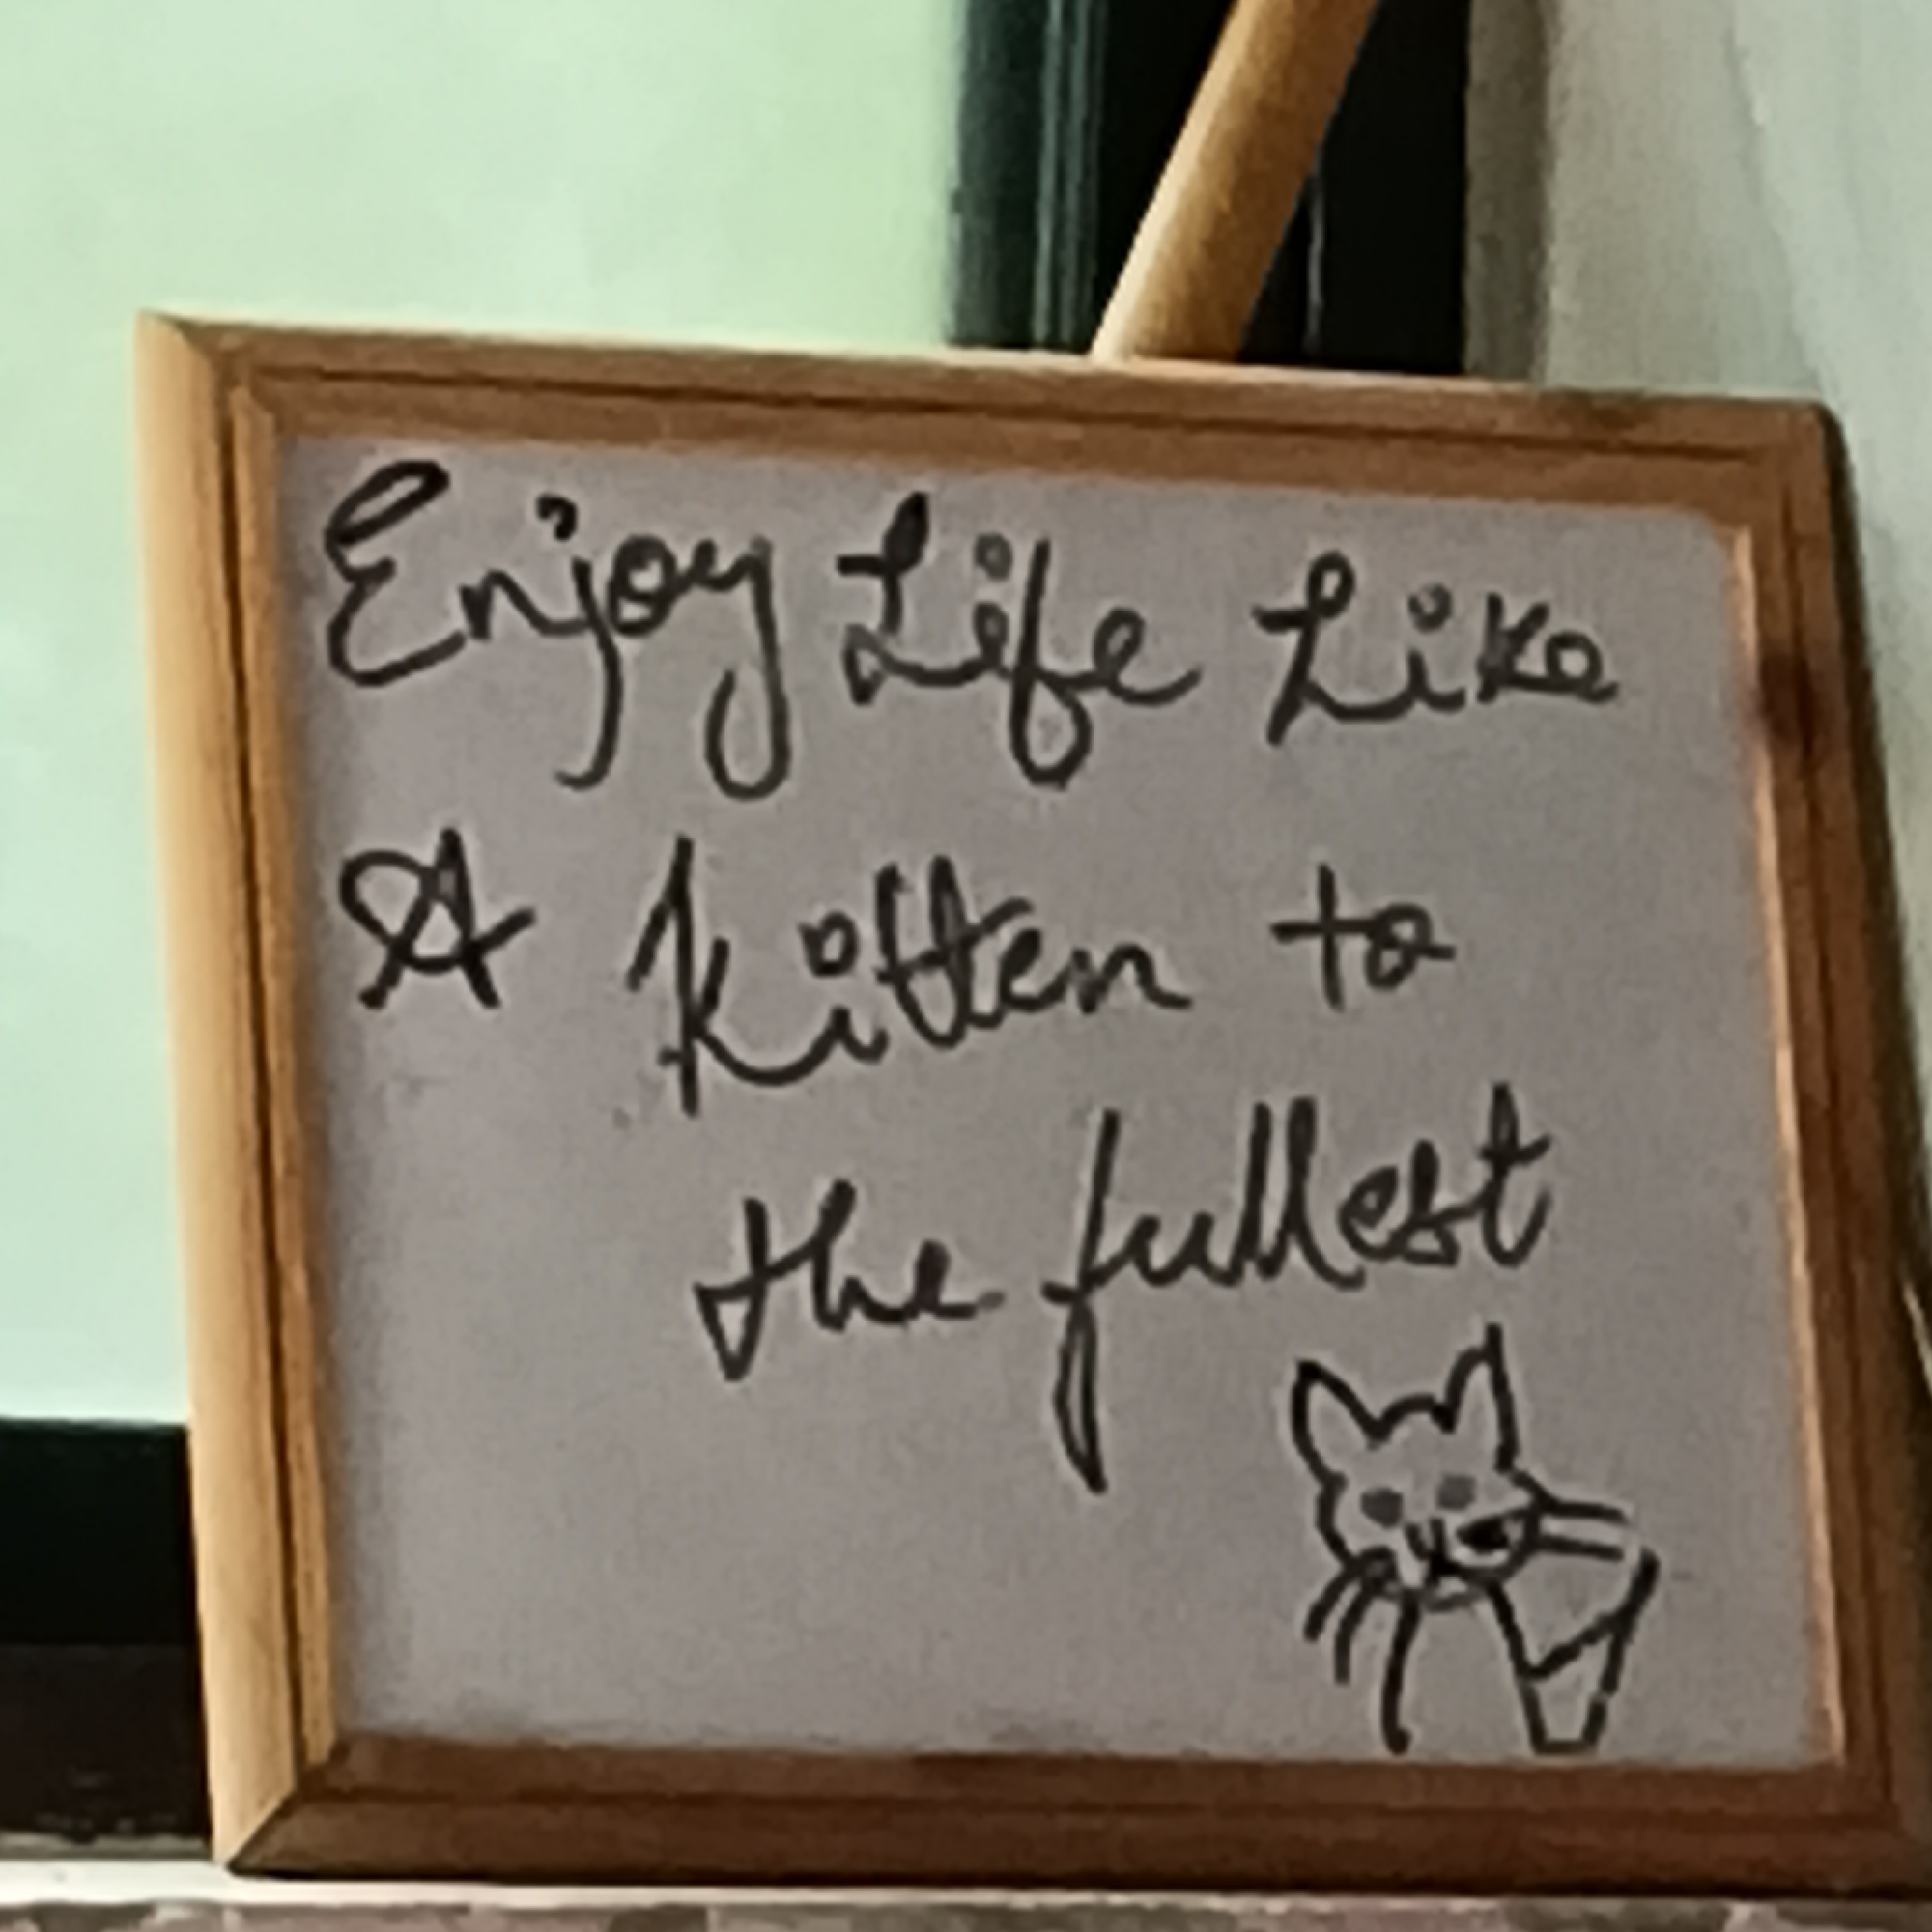 Enjoy Life Like
A Kitten to
the fullest